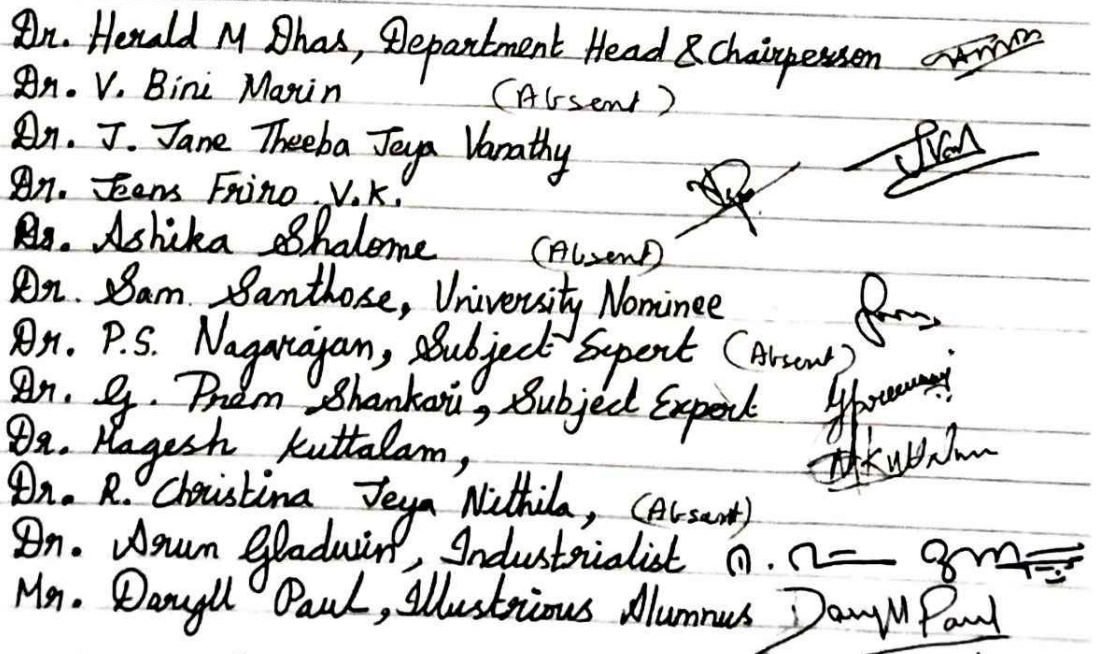 Dr. Herald M Dhas, Department Head & Chairperson
Dr. V. Bini Marin (Absent)
Dr. J. Jane Theeba Jeya Vanathy
Dr. Jeens Frino V.K.
Dr. Ashika Shalome (Absent)
Dr. Sam Santhose, University Nominee
Dr. P.S. Nagarajan, Subject Expert (Absent)
Dr. G. Prem Shankari, Subject Expert
Dr. Magesh Kuttalam,
Dr. R. Christina Jeya Nithila, (Absent)
Dr. Arun Gladwin, Industrialist
Mr. Daryll Paul, Illustrious Alumnus Daryll Paul